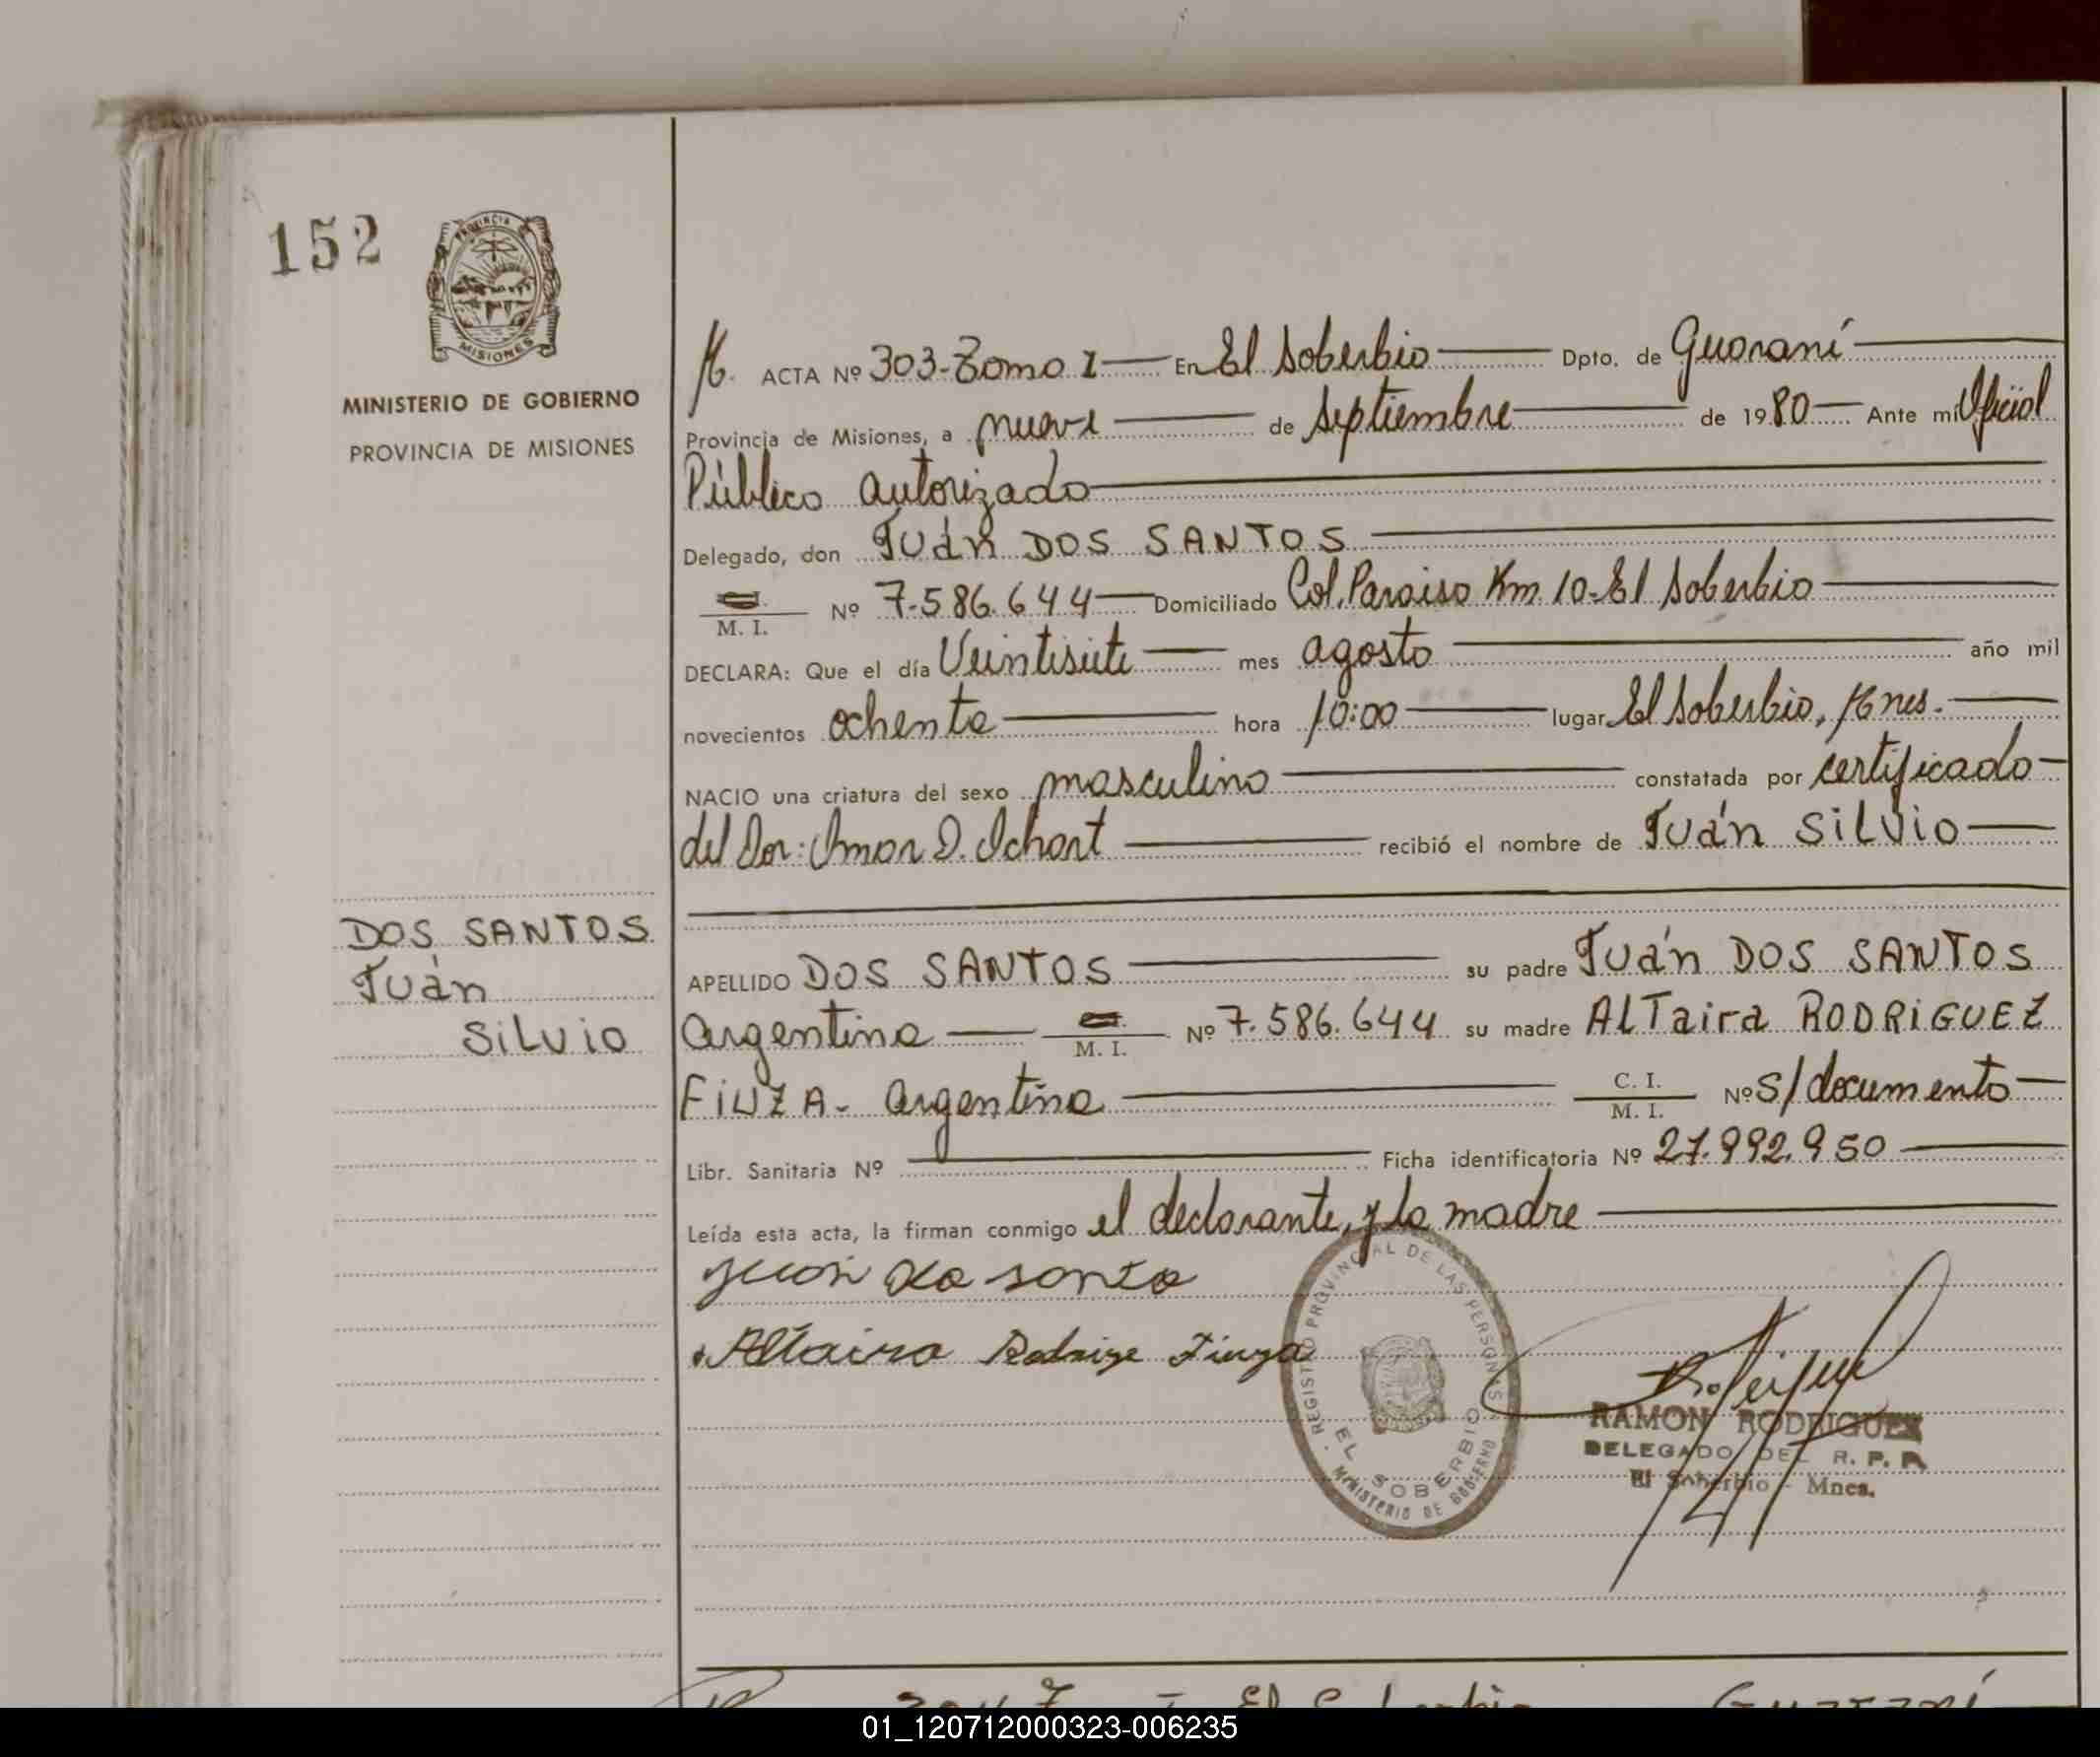 152
PROVINCIA
MISIONES
MINISTERIO DE GOBIERNO
PROVINCIA DE MISIONES
DOS SANTOS
Juán
Silvio
M. ACTA Nº 303-Tomo I En El Soberbio Dpto. de Guaraní
Provincia de Misiones, a nueve de septiembre de 1980 Ante mí Oficial
Público autorizado
Delegado, don Juán DOS SANTOS
M. I. Nº 7.586.644 Domiciliado Col. Paraiso Km 10-El Soberbio
DECLARA: Que el día Veintisiete mes agosto año mil
novecientos ochenta hora 10:00 lugar El Soberbio, Mnes.
NACIO una criatura del sexo masculino constatada por certificado
del Dor: Omar D. recibió el nombre de Juán Silvio
APELLIDO DOS SANTOS su padre Juán DOS SANTOS
Argentino M. I. Nº 7.586.644 su madre Altaira RODRIGUEZ
FIUZA- Argentina C. I. M. I. Nº S/documento
Libr. Sanitaria Nº Ficha identificatoria Nº 27.992.950
Leída esta acta, la firman conmigo el declarante, y la madre
Juan do santo
Altaira Rodrige Fiuza
REGISTRO PROVINCIAL DE LAS PERSONAS
EL SOBERBIO
MINISTERIO DE GOBIERNO
RAMON RODRIGUEZ
DELEGADO DEL R. P. P.
El Soberbio - Mnes.
El Soberbio
01_120712000323-006235